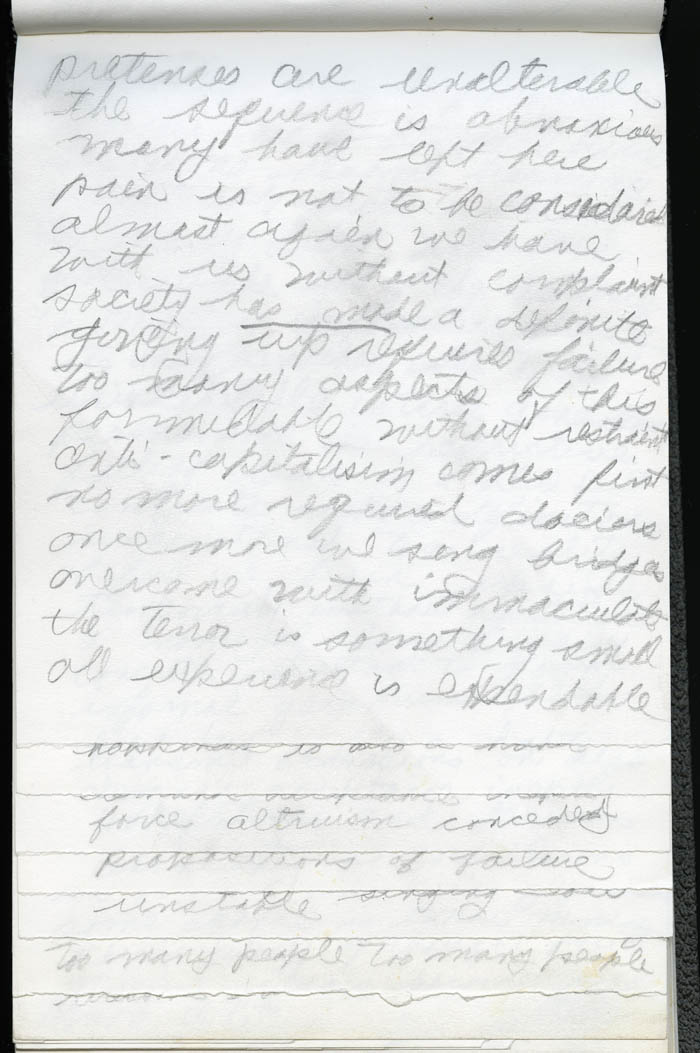 pretenses are unalterable
the sequence is obnoxious
many have left here
pain is not to be considered
almost again we have
with us without complaint
society has made a definite
giving up requires failure
too many aspects of this
formidable without restraint
anti-capitalism comes first
no more required
once more we sang bridges
overcome with immaculate
the terror is something small
all experience is expendable
is also a
force altruism conceded
propositions of failure
unstable singing
too many people too many people